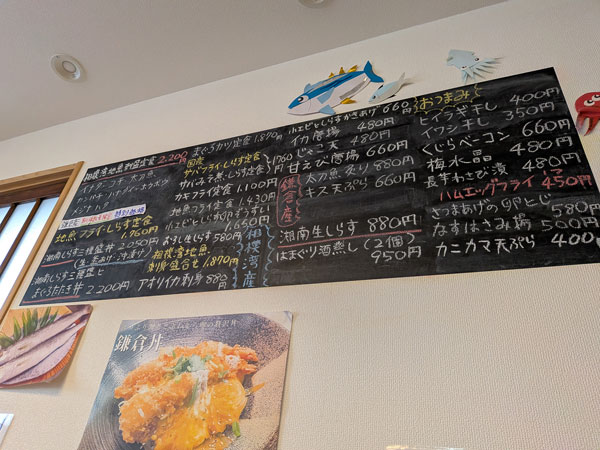 相模湾地魚刺身定食 2.200円
イナダ・コチ・太刀魚
地魚フライ・しらす定食
1.760円
湘南しらす三種盛丼 2.050円
湘南しらす三種盛と
まぐろたたき丼 2.200円
まぐろカツ定食 1.870円
国産
サバフライ・しらす定食
サバみそ煮・しらす定食
1760円
カキフライ定食 1.100円
地魚フライ定食 1.430円
おすし生しらす 580円
相模湾地魚
刺身盛合せ 1.870円
アオリイカ刺身 880円
相模湾産
エビとしらすかきあげ 660円
イカ唐揚 480円
じゃこ天 480円
甘えび唐揚 660円
鎌倉産
太刀魚炙り 880円
キス天ぷら 660円
湘南生しらす 880円
はまぐり酒蒸し(2個)
950円
おつまみ
ヒイラギ干し 400円
イワシ干し 350円
くじらベーコン 660円
梅水晶 480円
長芋わさび漬 480円
ハムエッグフライ 450円
さつまあげの卵とじ 580円
なすはさみ揚 500円
カニカマ天ぷら 400円
鎌倉丼